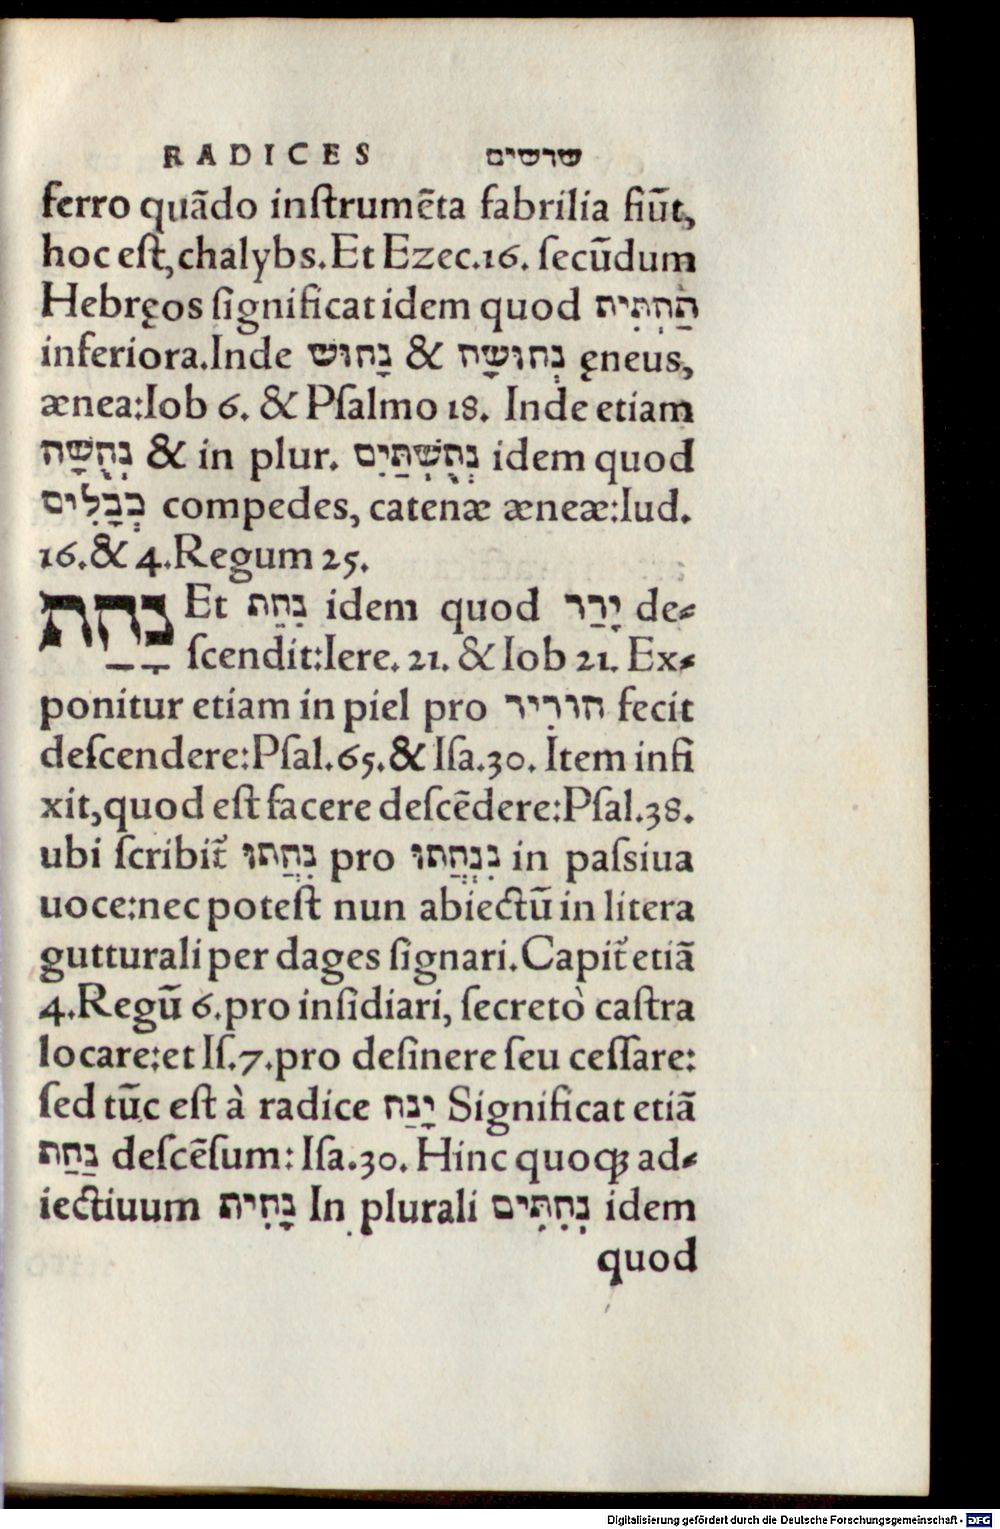 RADICES שרשים
ferro quãdo inſtrumẽta fabrilia fiũt,
hoc eſt, chalybs. Et Ezec.16. ſecũdum
Hebręos ſignificat idem quod תַּחְתִּית
inferiora. Inde נָחוּשׁ & נְחוּשָׁה ęneus,
ænea: Iob 6. & Pſalmo 18. Inde etiam
נְחֻשָׁה & in plur. נְחֻשְׁתַּיִם idem quod
כְבָלִים compedes, catenæ æneæ: Iud.
16. & 4. Regum 25.
נָחַת Et נִחַת idem quod יָרַד de⸗
ſcendit: Iere. 21. & Iob 21. Ex⸗
ponitur etiam in piel pro הוֹרִיד fecit
deſcendere: Pſal.65. & Iſa.30. Item infi
xit, quod eſt facere deſcẽdere: Pſal.38.
ubi ſcribit᷑ נִחֲתוּ pro נִנְחֲתוּ in paſsiua
uoce: nec poteſt nun abiectũ in litera
gutturali per dages ſignari. Capit᷑ etiã
4. Regũ 6. pro inſidiari, ſecretò caſtra
locare: et Iſ.7. pro deſinere ſeu ceſſare:
ſed tũc eſt à radice יָנַח Significat etiã
נַחַת deſcẽſum: Iſa.30. Hinc quoqꝫ ad⸗
iectiuum נָחִית In plurali נְחִתִּים idem
quod
Digitalisierung gefördert durch die Deutsche Forschungsgemeinschaft - DFG